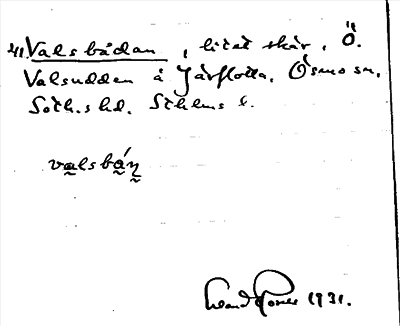 Valsbådan, litet skär, Ö.
Valsudden å Järflotta, Ösmo sn.
Soth.s hd. Sthlms l.
valsbán
1931.